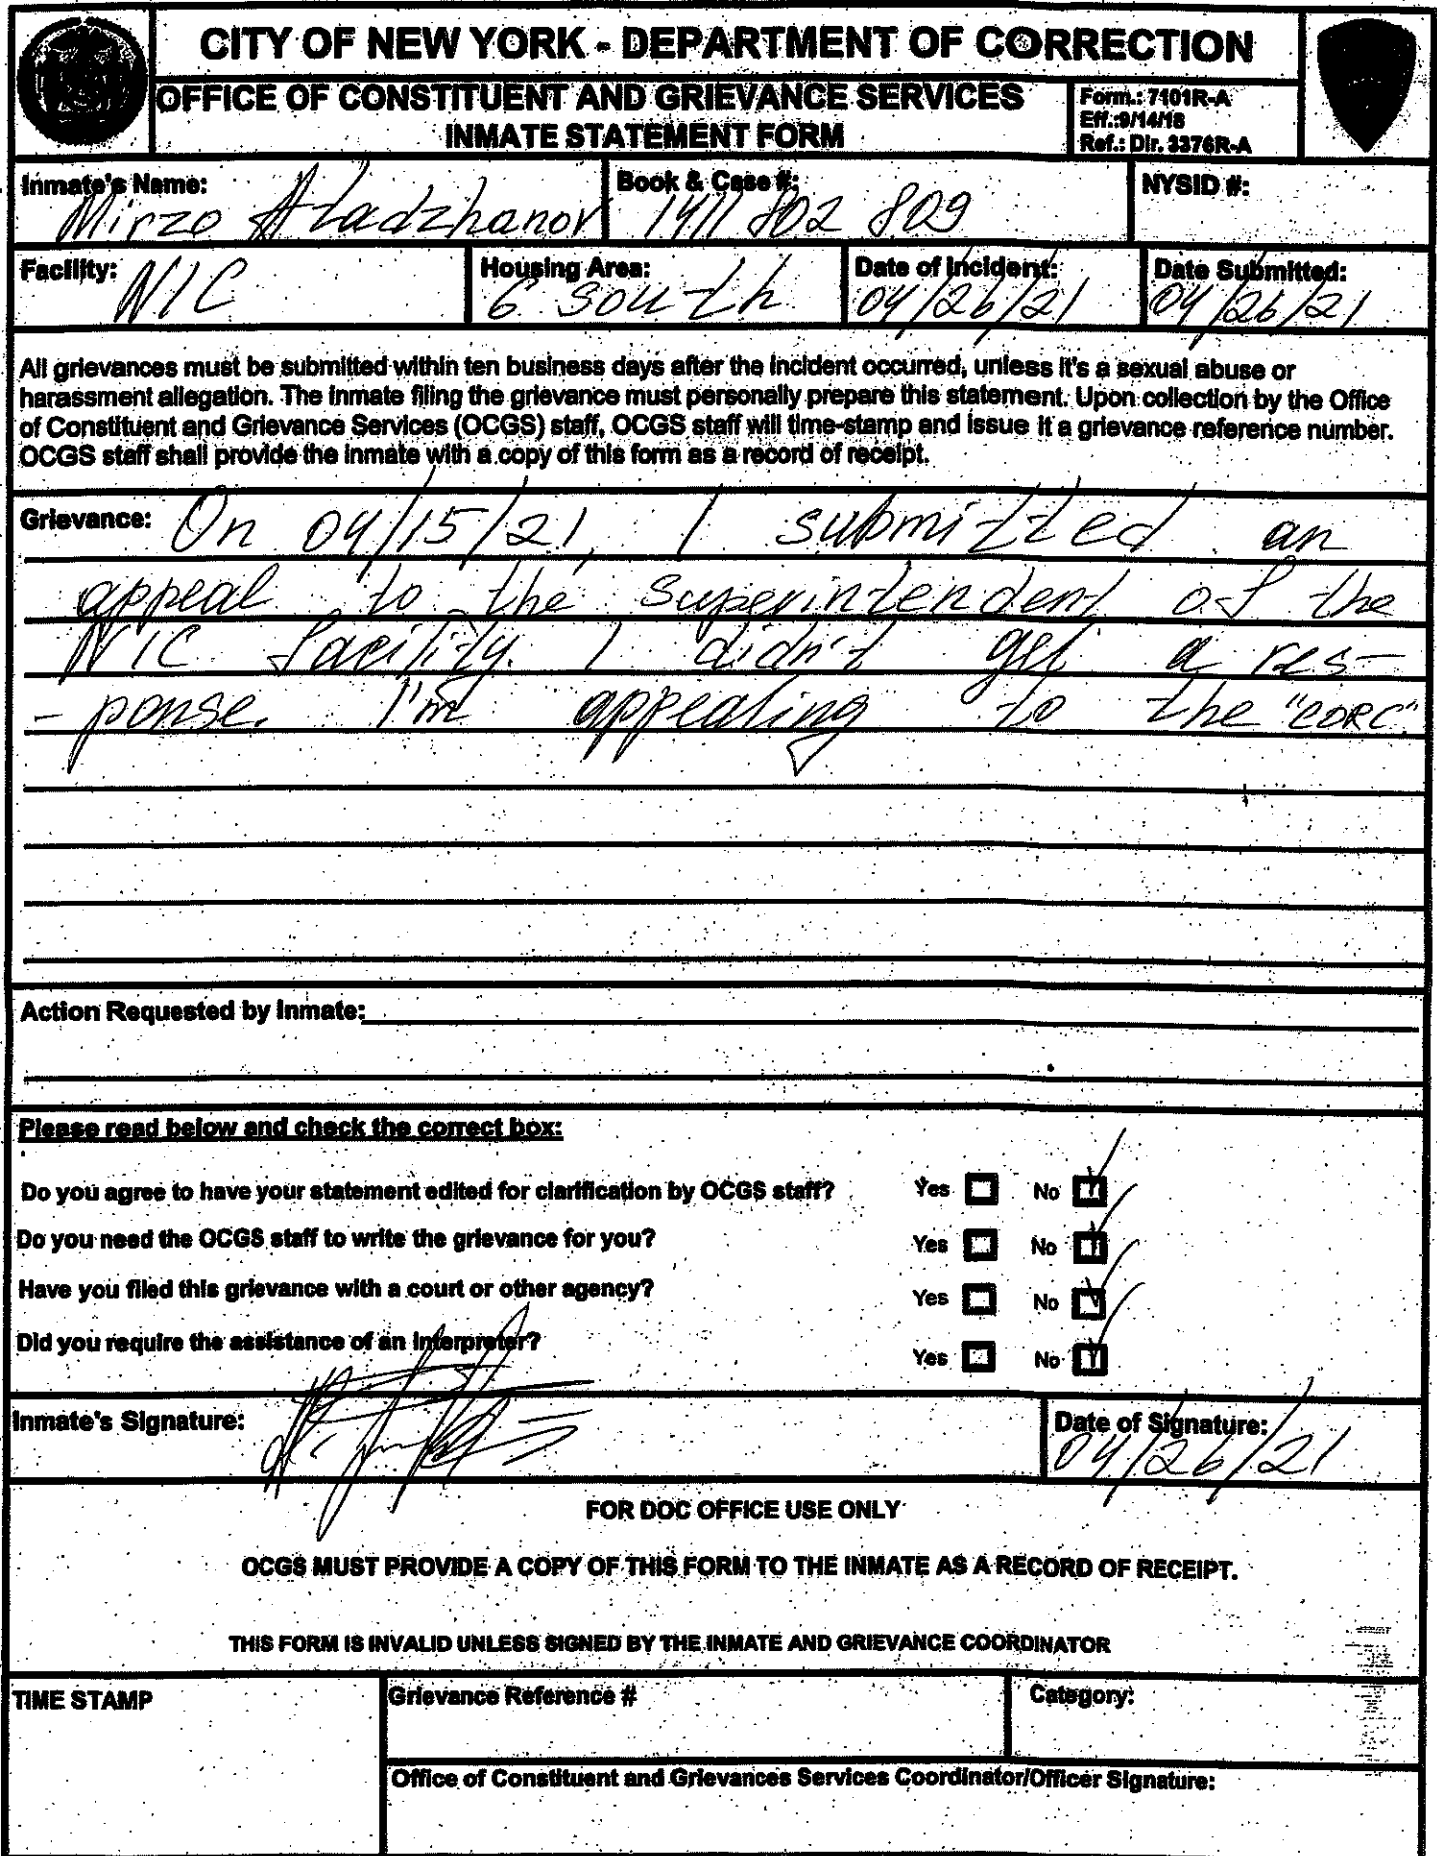 CITY OF NEW YORK - DEPARTMENT OF CORRECTION
OFFICE OF CONSTITUENT AND GRIEVANCE SERVICES
INMATE STATEMENT FORM
Form.: 7101R-A
Eff.:9/14/18
Ref.: Dir. 3376R-A
Inmate's Name:
Mirzo Atadzhanov
Book & Case #:
1411 802 809
NYSID #:
Facility:
NIC
Housing Area:
6 South
Date of Incident:
04/26/21
Date Submitted:
04/26/21
All grievances must be submitted within ten business days after the incident occurred, unless it's a sexual abuse or
harassment allegation. The inmate filing the grievance must personally prepare this statement. Upon collection by the Office
of Constituent and Grievance Services (OCGS) staff, OCGS staff will time-stamp and issue it a grievance reference number.
OCGS staff shall provide the inmate with a copy of this form as a record of receipt.
Grievance: On 04/15/21, I submitted an
appeal to the Superintendent of the
NIC facility. I didn't get a res-
- ponse. I'm appealing to the "CORC"
Action Requested by Inmate:
Please read below and check the correct box:
Do you agree to have your statement edited for clarification by OCGS staff? Yes No
Do you need the OCGS staff to write the grievance for you? Yes No
Have you filed this grievance with a court or other agency? Yes No
Did you require the assistance of an interpreter? Yes No
Inmate's Signature:
Date of Signature:
04/26/21
FOR DOC OFFICE USE ONLY
OCGS MUST PROVIDE A COPY OF THIS FORM TO THE INMATE AS A RECORD OF RECEIPT.
THIS FORM IS INVALID UNLESS SIGNED BY THE INMATE AND GRIEVANCE COORDINATOR
TIME STAMP
Grievance Reference #
Category:
Office of Constituent and Grievances Services Coordinator/Officer Signature: